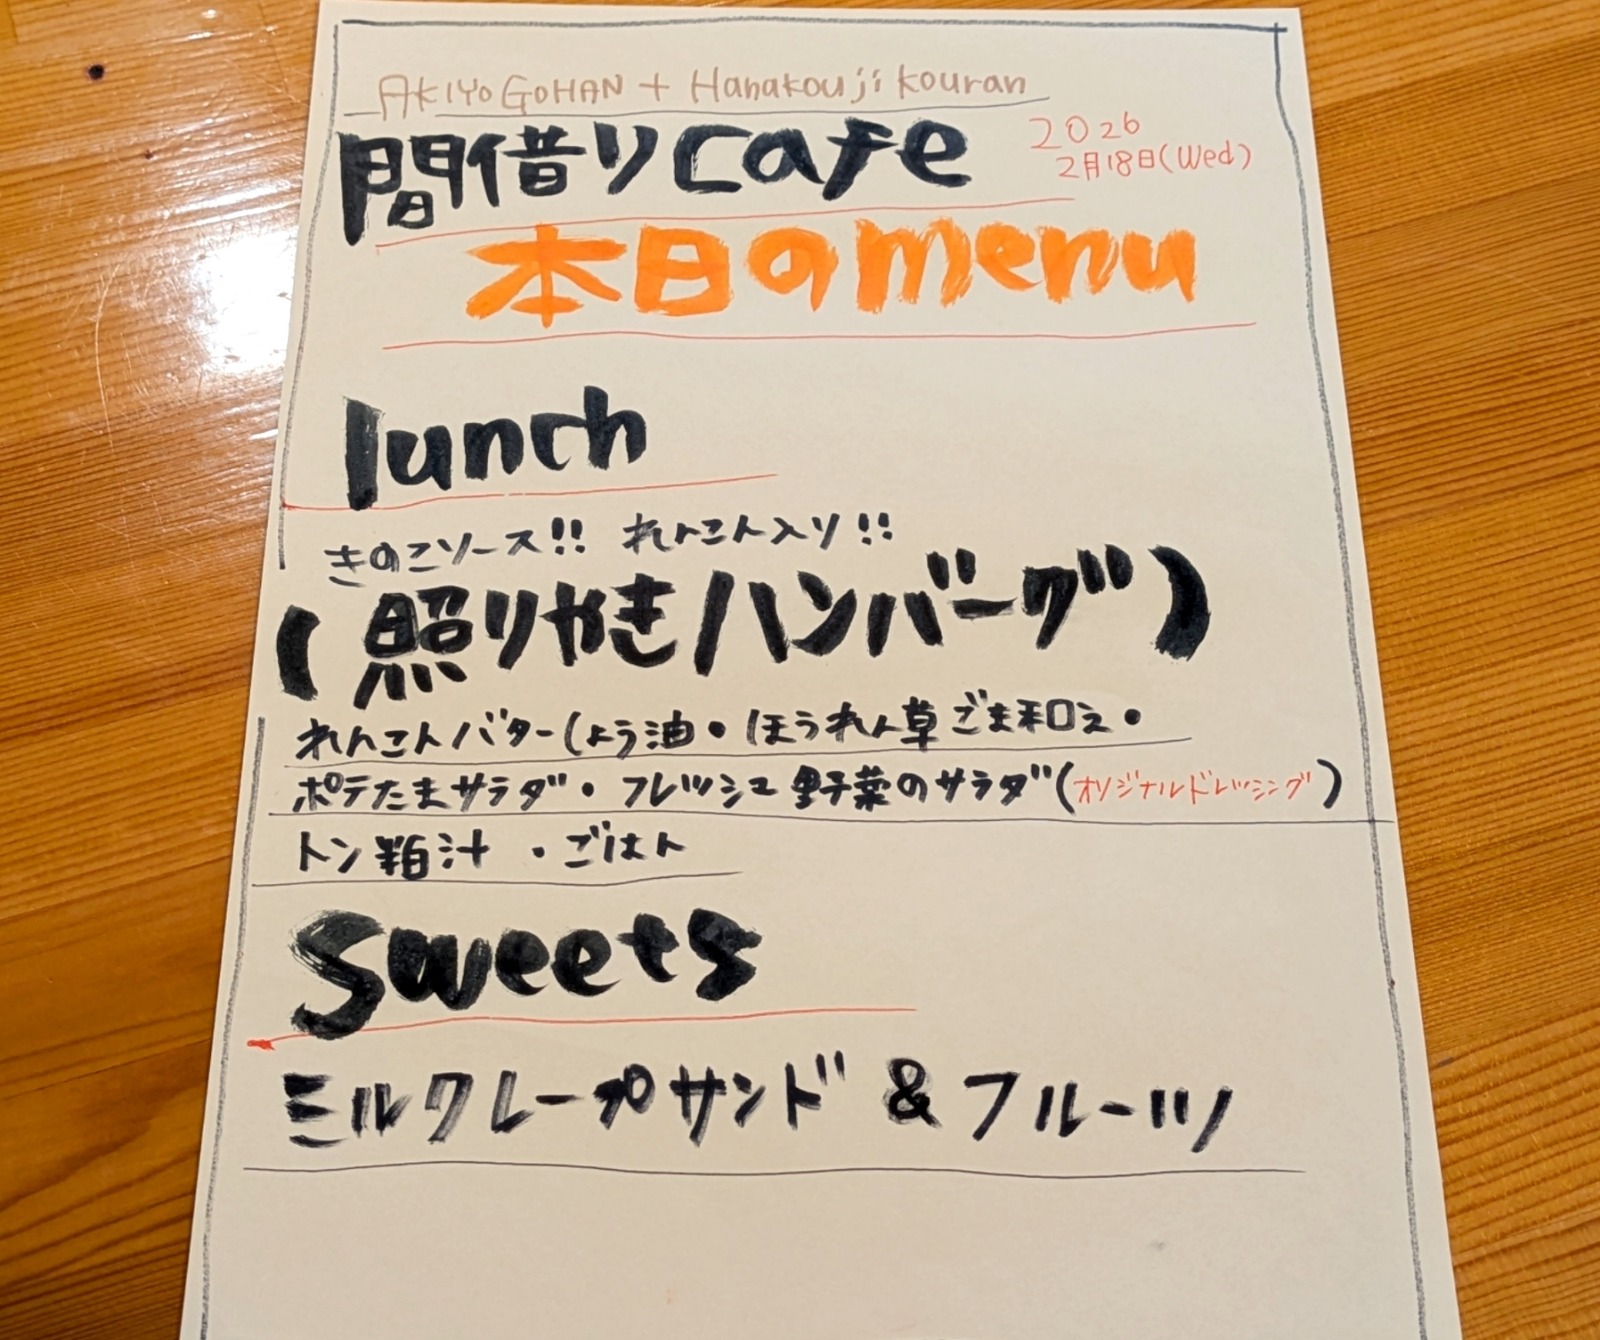 AKIYO GOHAN + Hanakouji kouran
間借りcafe
2026
2月18日(Wed)
本日のmenu
lunch
きのこソース!! れんこん入り!!
(照りやきハンバーグ)
れんこんバターしょう油・ほうれん草ごま和え・
ポテたまサラダ・フレッシュ野菜のサラダ(オリジナルドレッシング)
トン粕汁 ・ごはん
Sweets
ミルクレープサンド & フルーツ